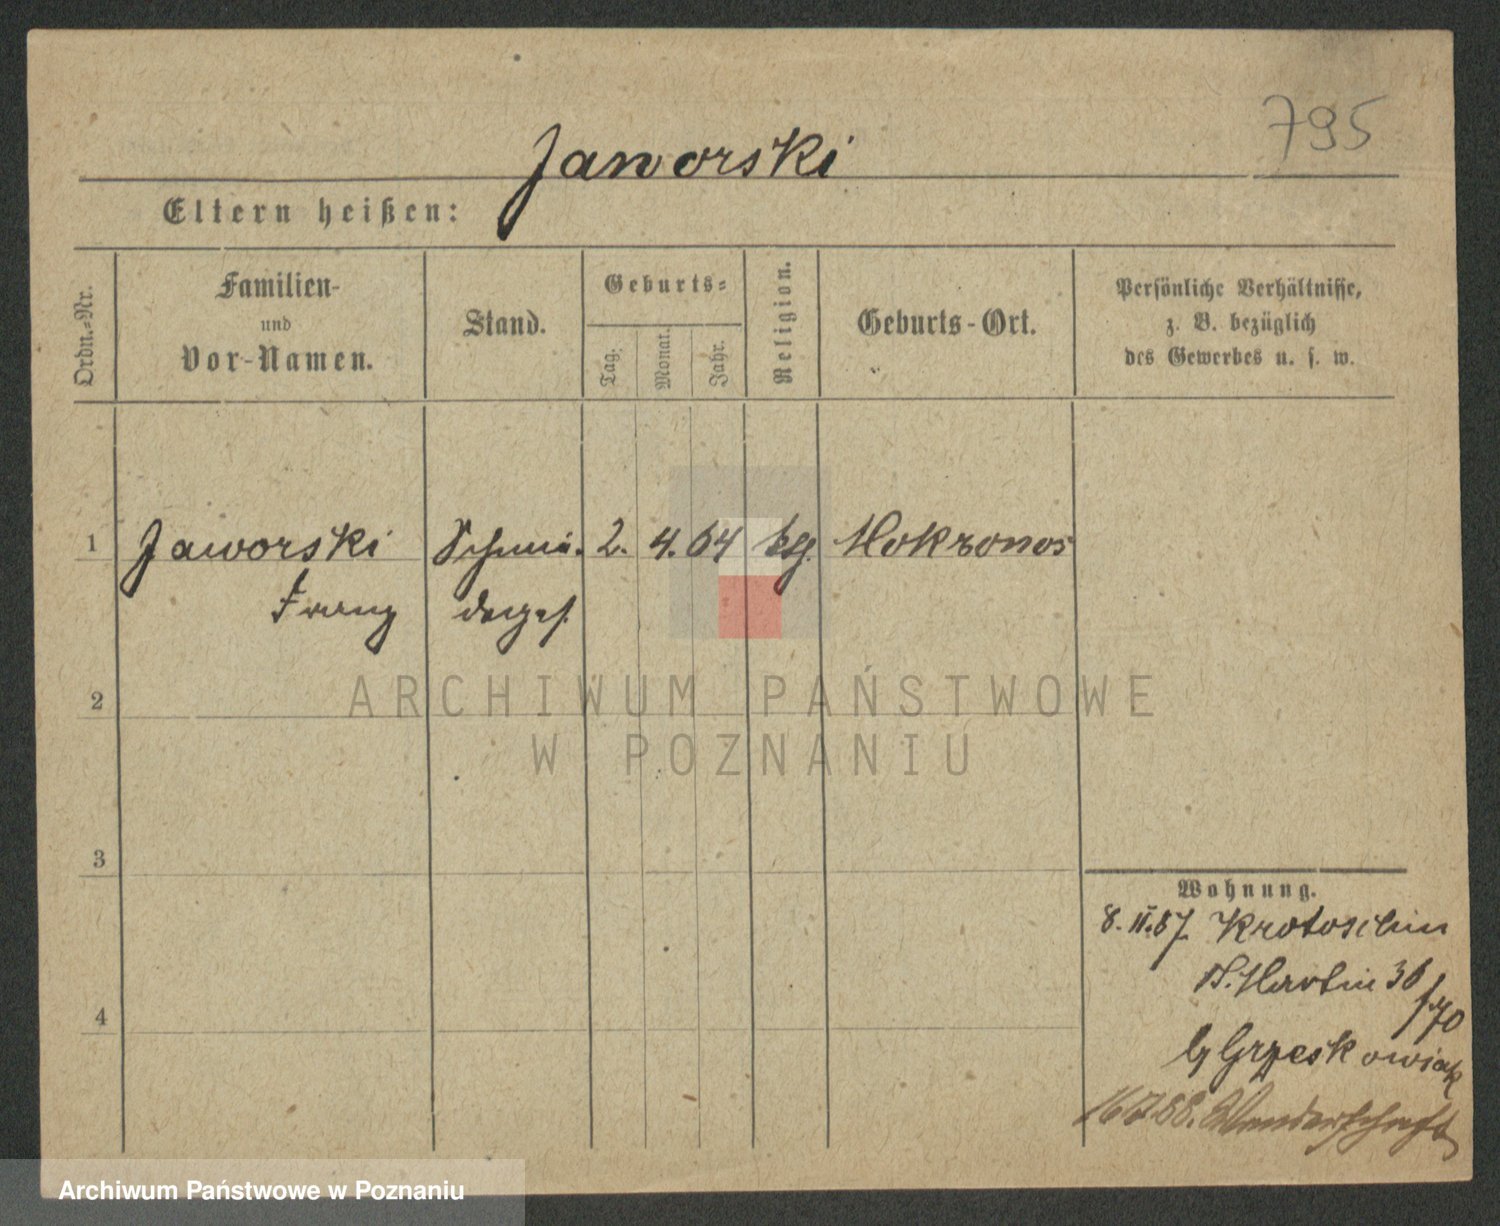 795
Jaworski
Eltern heißen:
Ordn.=Nr.
Familien-
und
Vor-Namen.
Stand.
Geburts=
Tag.
Monat.
Jahr.
Religion.
Geburts-Ort.
Persönliche Verhältnisse,
z. B. bezüglich
des Gewerbes u. s. w.
1 Jaworski Schmie. 2. 4. 64 kg. Mokronos
Franz
2
3
4
Wohnung.
8. II. 87. Krotoschin
St. Martin 36/70
b/ Grzeskowiak
88. Wanderschaft
ARCHIWUM PAŃSTWOWE
W POZNANIU
Archiwum Państwowe w Poznaniu